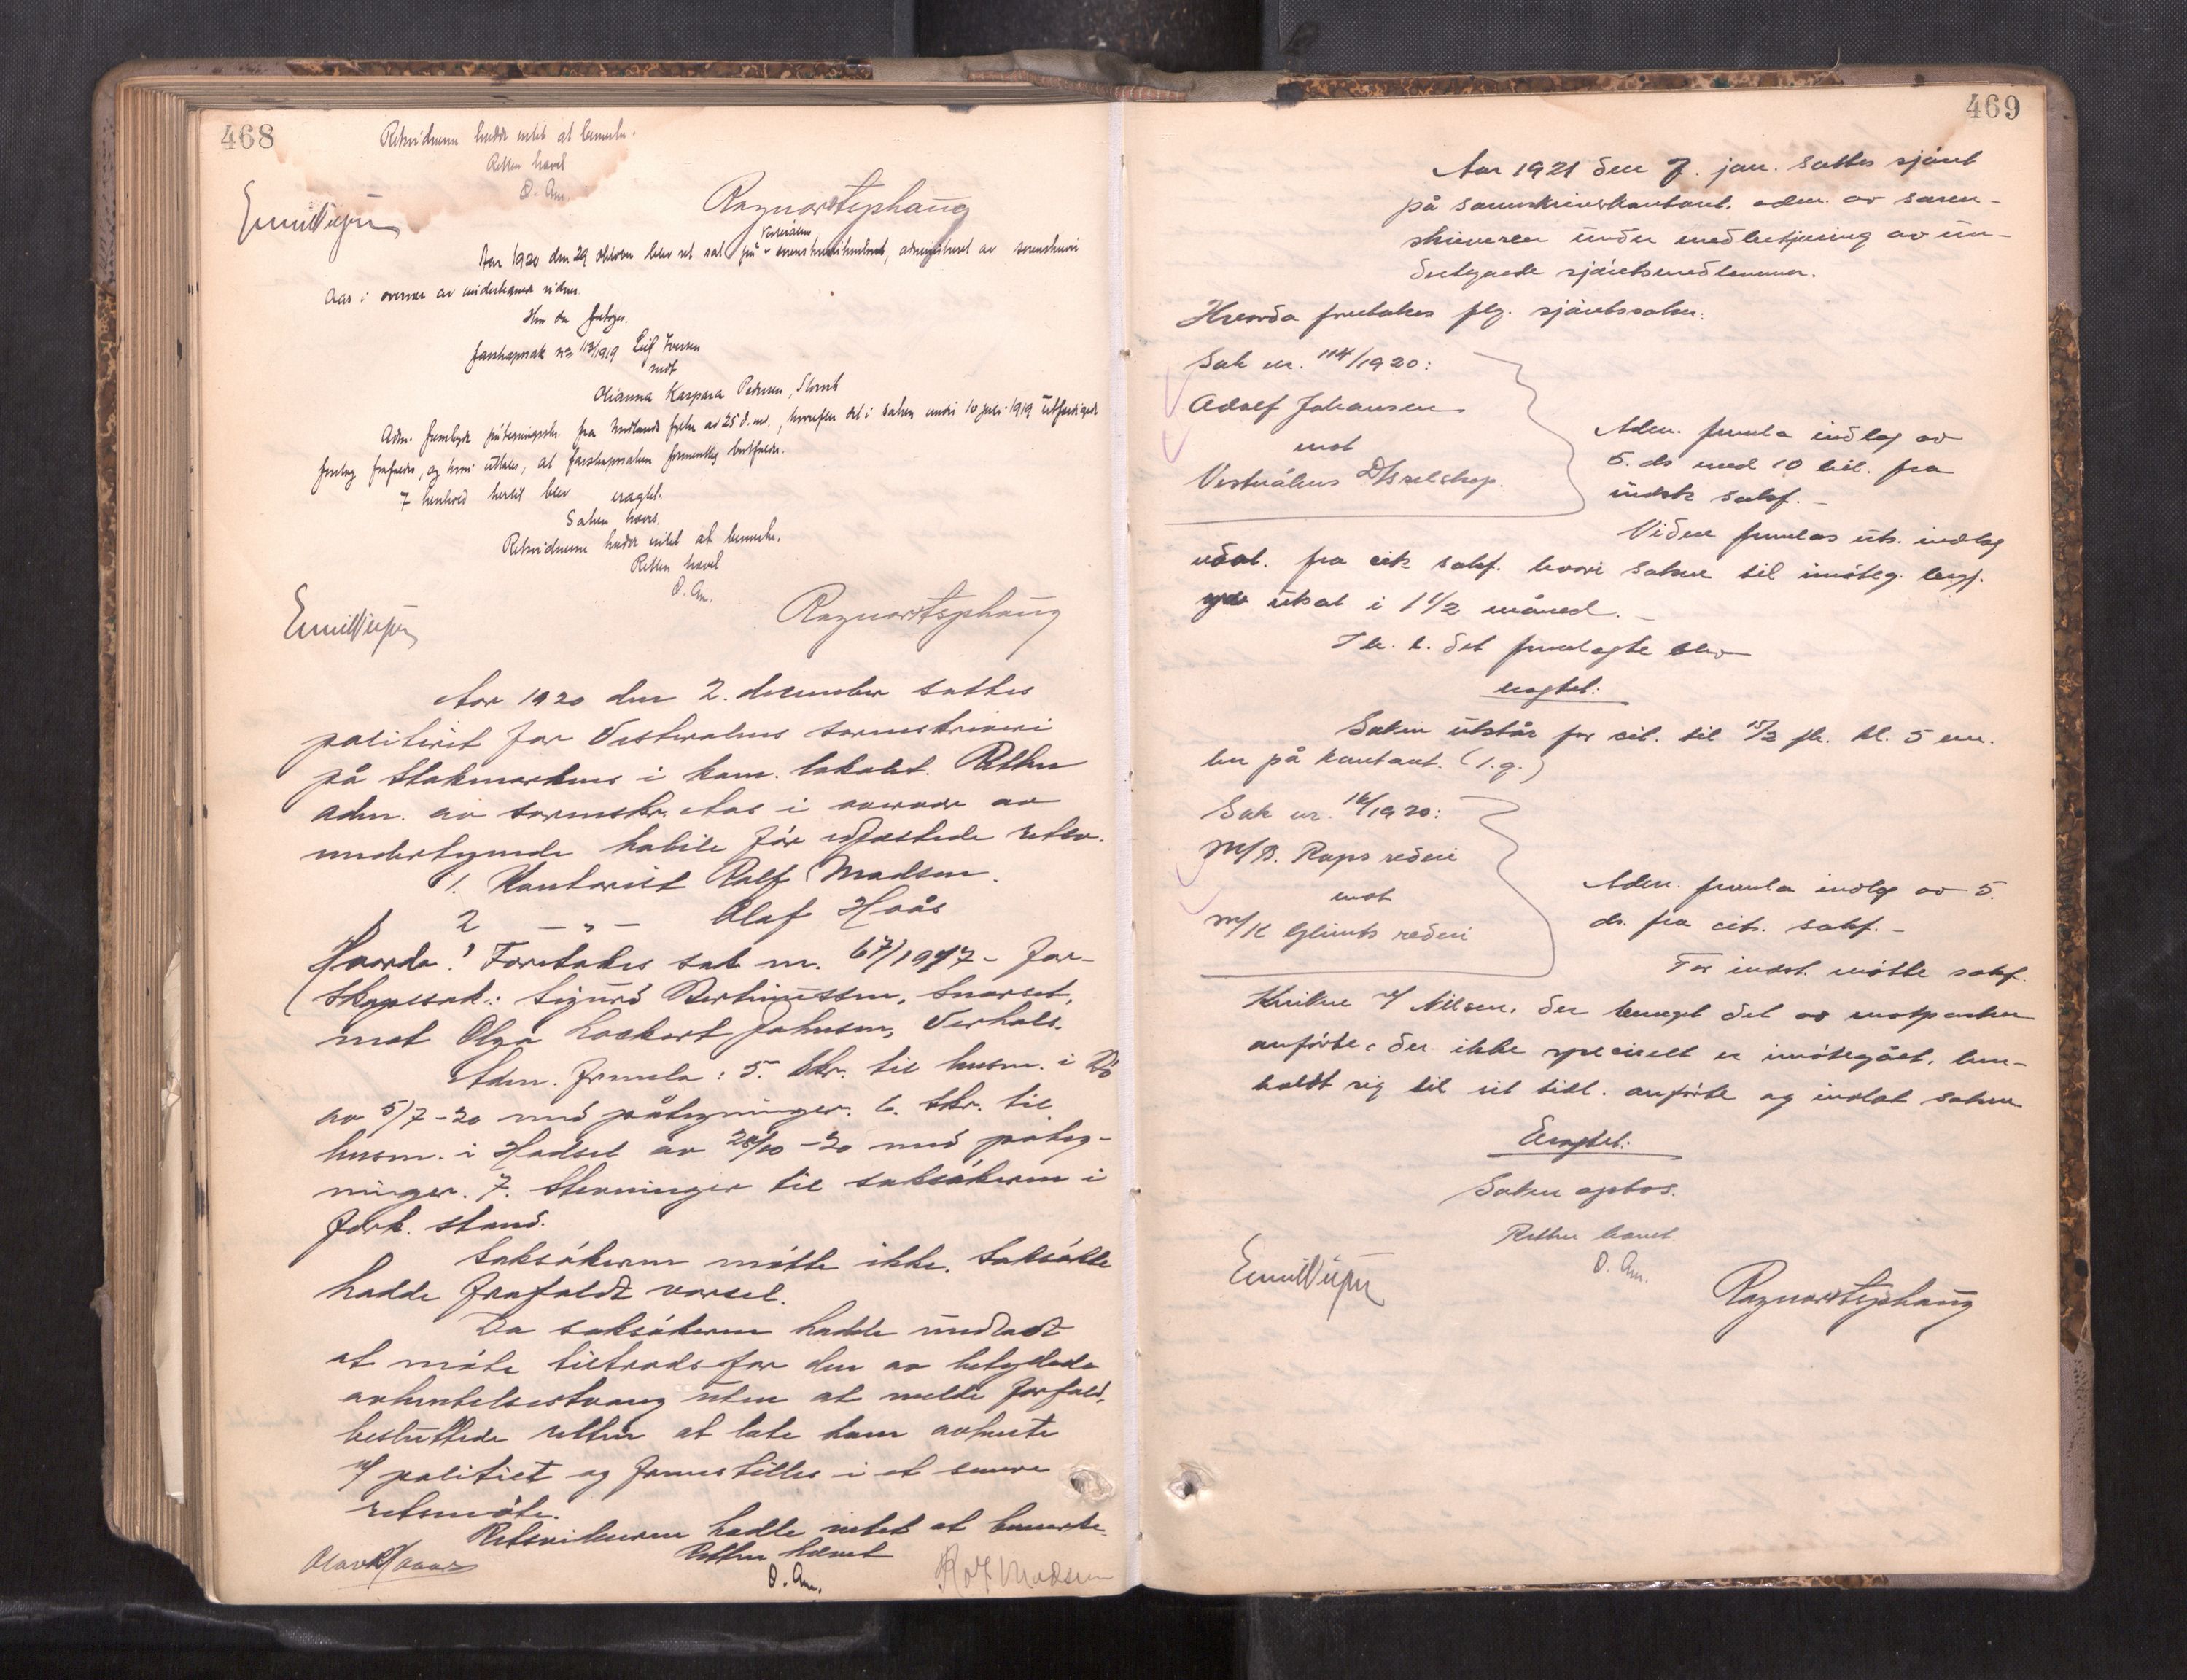 468
Retsvidnerne hadde intet at bemerke.
Retten hævet
O. Aas
Emil Ragnar Stephang
Vesteraalens
Aar 1920 den 29 oktober blev ret sat på sorenskriverkontoret, administrert av sorenskriver
Aas i overvær av undertegnede vidner.
Hvor da foretoges.
farskapssak nr 113/1919 Leif Iversen
mot
Olianna Kaspara Pedersen,
Adm. fremlagde påtegningsskr. fra Nordlands fylke av 25 d.m., hvorefter det i saken under 10 juli 1919 utfærdigede
forelæg frafaldes, og hvori uttales, at farskapssaken formentlig bortfalder.
I henhold hertil blev eragtet.
Saken hæves.
Retsvidnerne hadde intet at bemerke.
Retten hævet
O. Aas.
Emil Ragnar Stephang
Aar 1920 den 2. december sattes
politiret for Vesteralens sorenskriveri
på Stokmarknes i kom. lokalet. Retten
adm. av sorenskr. Aas i overvær av
undertegnede habile før edfæstede retsv.
1. Kontorist Rolf Madsen.
2 — " — Olaf Haås
Hvorda! Foretakes sak nr. 67/1917 - Far-
skapssak: Sigurd Bertinussen, Snarset,
mot Olga Lockert Johnsen, Verhals.
Adm. fremla: 5. Skr. til lensm. i Bø
av 5/7-20 med påtegninger. 6. Skr. til
lensm. i Hadsel av 28/10-20 med påteg-
ninger. 7. Stevninger til saksøkeren i
fork. stand.
Saksøkeren møtte ikke. Saksøkte
hadde frafaldt varsel.
Da saksøkeren hadde undlatt
at møte tiltrods for den av betydede
avhentelsestvang uten at melde forfald,
besluttede retten at late ham avhente
v/ politiet og fremstilles i et senere
retsmøte.
Retsvidnerne hadde intet at bemerke.
Retten hævet
O. Aas.
Olav Haaas Rolf Madsen
469
Aar 1921 den 7. jan. sattes sjøret
på sorenskriverkontoret. adm. av soren-
skriveren under medbetjening av un-
dertegnede sjøretsmedlemmer.
Hvorda foretakes flg. sjøretssaker:
Sak nr. 114/1920:
Adolf Johansen
mot
Vesterålens D/Sselskap.
Adm. fremla indlæg av
5. ds med 10 bil. fra
indst. sakf. —
Videre fremlas uts. indlæg
udat. fra cit. sakf. hvori saken til imøteg. begj.
utsat i 1 1/2 måned. —
I h. t. det fremlagte blev
eragtet:
Saken utstår for cit. til 15/2 fk. kl. 5 em.
her på kontoret. (l.q.)
Sak nr. 16/1920:
M/B. Raps rederi
mot
M/K Glimts rederi
Adm. fremla indlæg av 5.
ds. fra cit. sakf. —
For indst. møtte sakf.
Knikne v/ Nilsen, der benegt. det av motparten
anførte, der ikke specielt er imøtegået, hen-
holdt sig til sit tidl. anførte og indlot saken
Eragtet:
Saken optas.
Retten hævet.
O. Aas.
Emil Ragnar Stephang